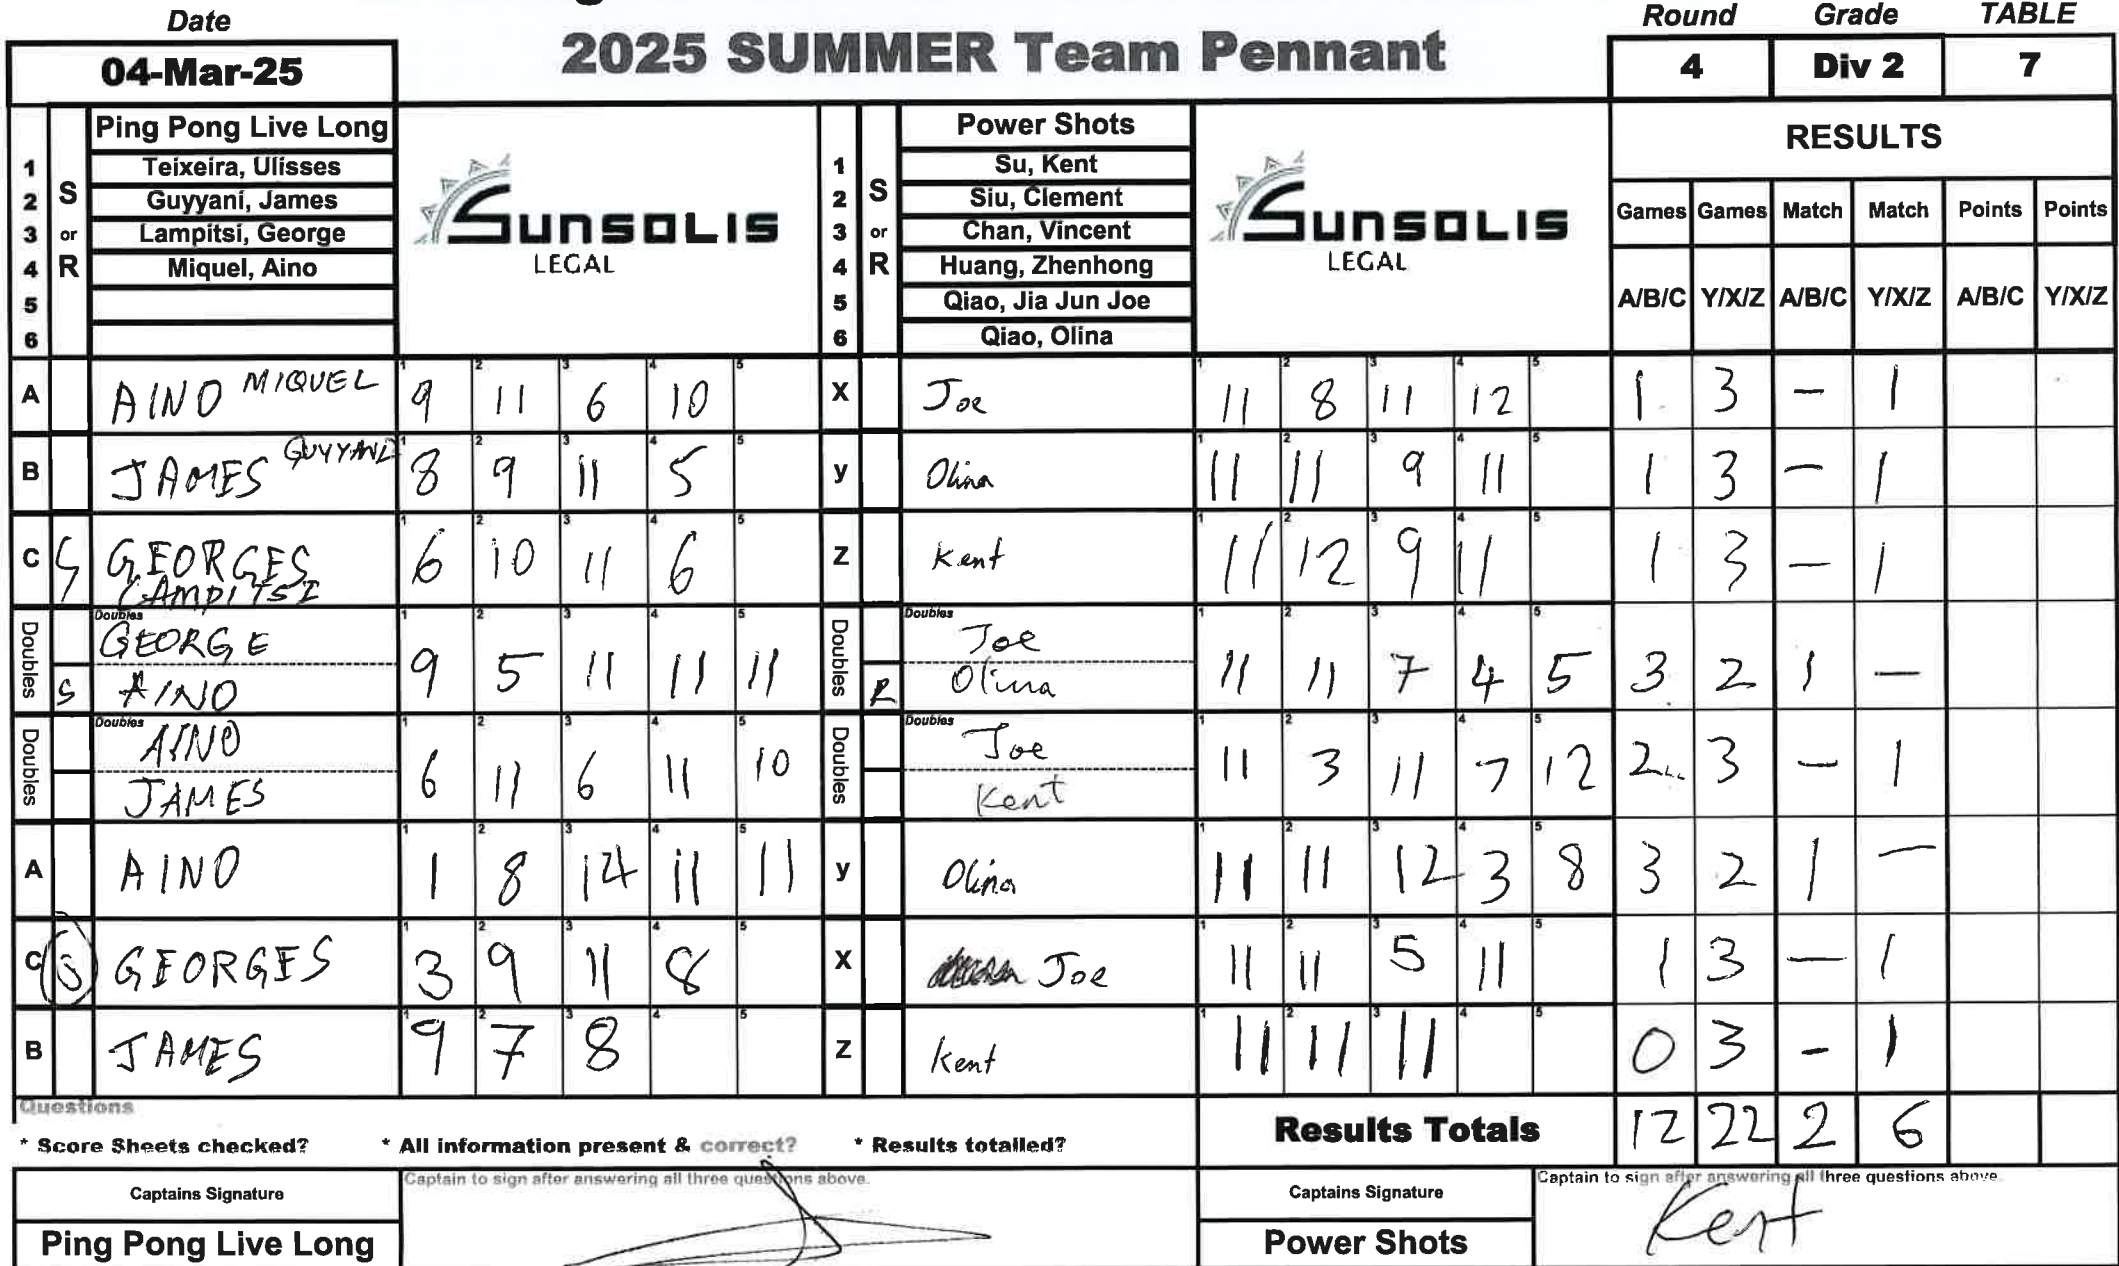 Date
2025 SUMMER Team Pennant
Round Grade TABLE
04-Mar-25
4 Div 2 7
Ping Pong Live Long
1 Teixeira, Ulisses
2 Guyyani, James
3 Lampitsi, George
4 Miquel, Aino
5
6
S or R
SUNSOLIS
LEGAL
Power Shots
1 Su, Kent
2 Siu, Clement
3 Chan, Vincent
4 Huang, Zhenhong
5 Qiao, Jia Jun Joe
6 Qiao, Olina
S or R
SUNSOLIS
LEGAL
RESULTS
Games Games Match Match Points Points
A/B/C Y/X/Z A/B/C Y/X/Z A/B/C Y/X/Z
A AINO MIQUEL 9 11 6 10 X Joe 11 8 11 12 1 3 – 1
B JAMES GUYYANI 8 9 11 5 y Olina 11 11 9 11 1 3 – 1
C S GEORGES LAMPITSI 6 10 11 6 Z Kent 11 12 9 11 1 3 – 1
Doubles GEORGE S AINO 9 5 11 11 11 Doubles Joe R Olina 11 11 7 4 5 3 2 1 –
Doubles AINO JAMES 6 11 6 11 10 Doubles Joe Kent 11 3 11 7 12 2 3 – 1
A AINO 1 8 14 11 11 y Olina 11 11 12 3 8 3 2 1 –
C S GEORGES 3 9 11 8 X Joe 11 11 5 11 1 3 – 1
B JAMES 9 7 8 Z Kent 11 11 11 0 3 – 1
Questions
* Score Sheets checked? * All information present & correct? * Results totalled?
Results Totals 12 22 2 6
Captains Signature
Captain to sign after answering all three questions above.
Captains Signature
Captain to sign after answering all three questions above.
Ping Pong Live Long
Power Shots
Kent